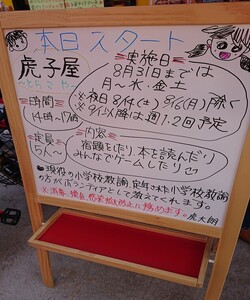 本日スタート
虎子屋
~とらこや~
実施日
8月31日までは
月～水・金土
※祝日8/14(土)8/16(月)除く
※9/1以降は週1.2回予定
時間
14時～17時
定員
5人～
内容
宿題をしたり本を読んだり
みんなでゲームしたり
■現役の小学校教諭、定年された小学校教諭
の方がボランティアとして教えてくれます。
虎太朗